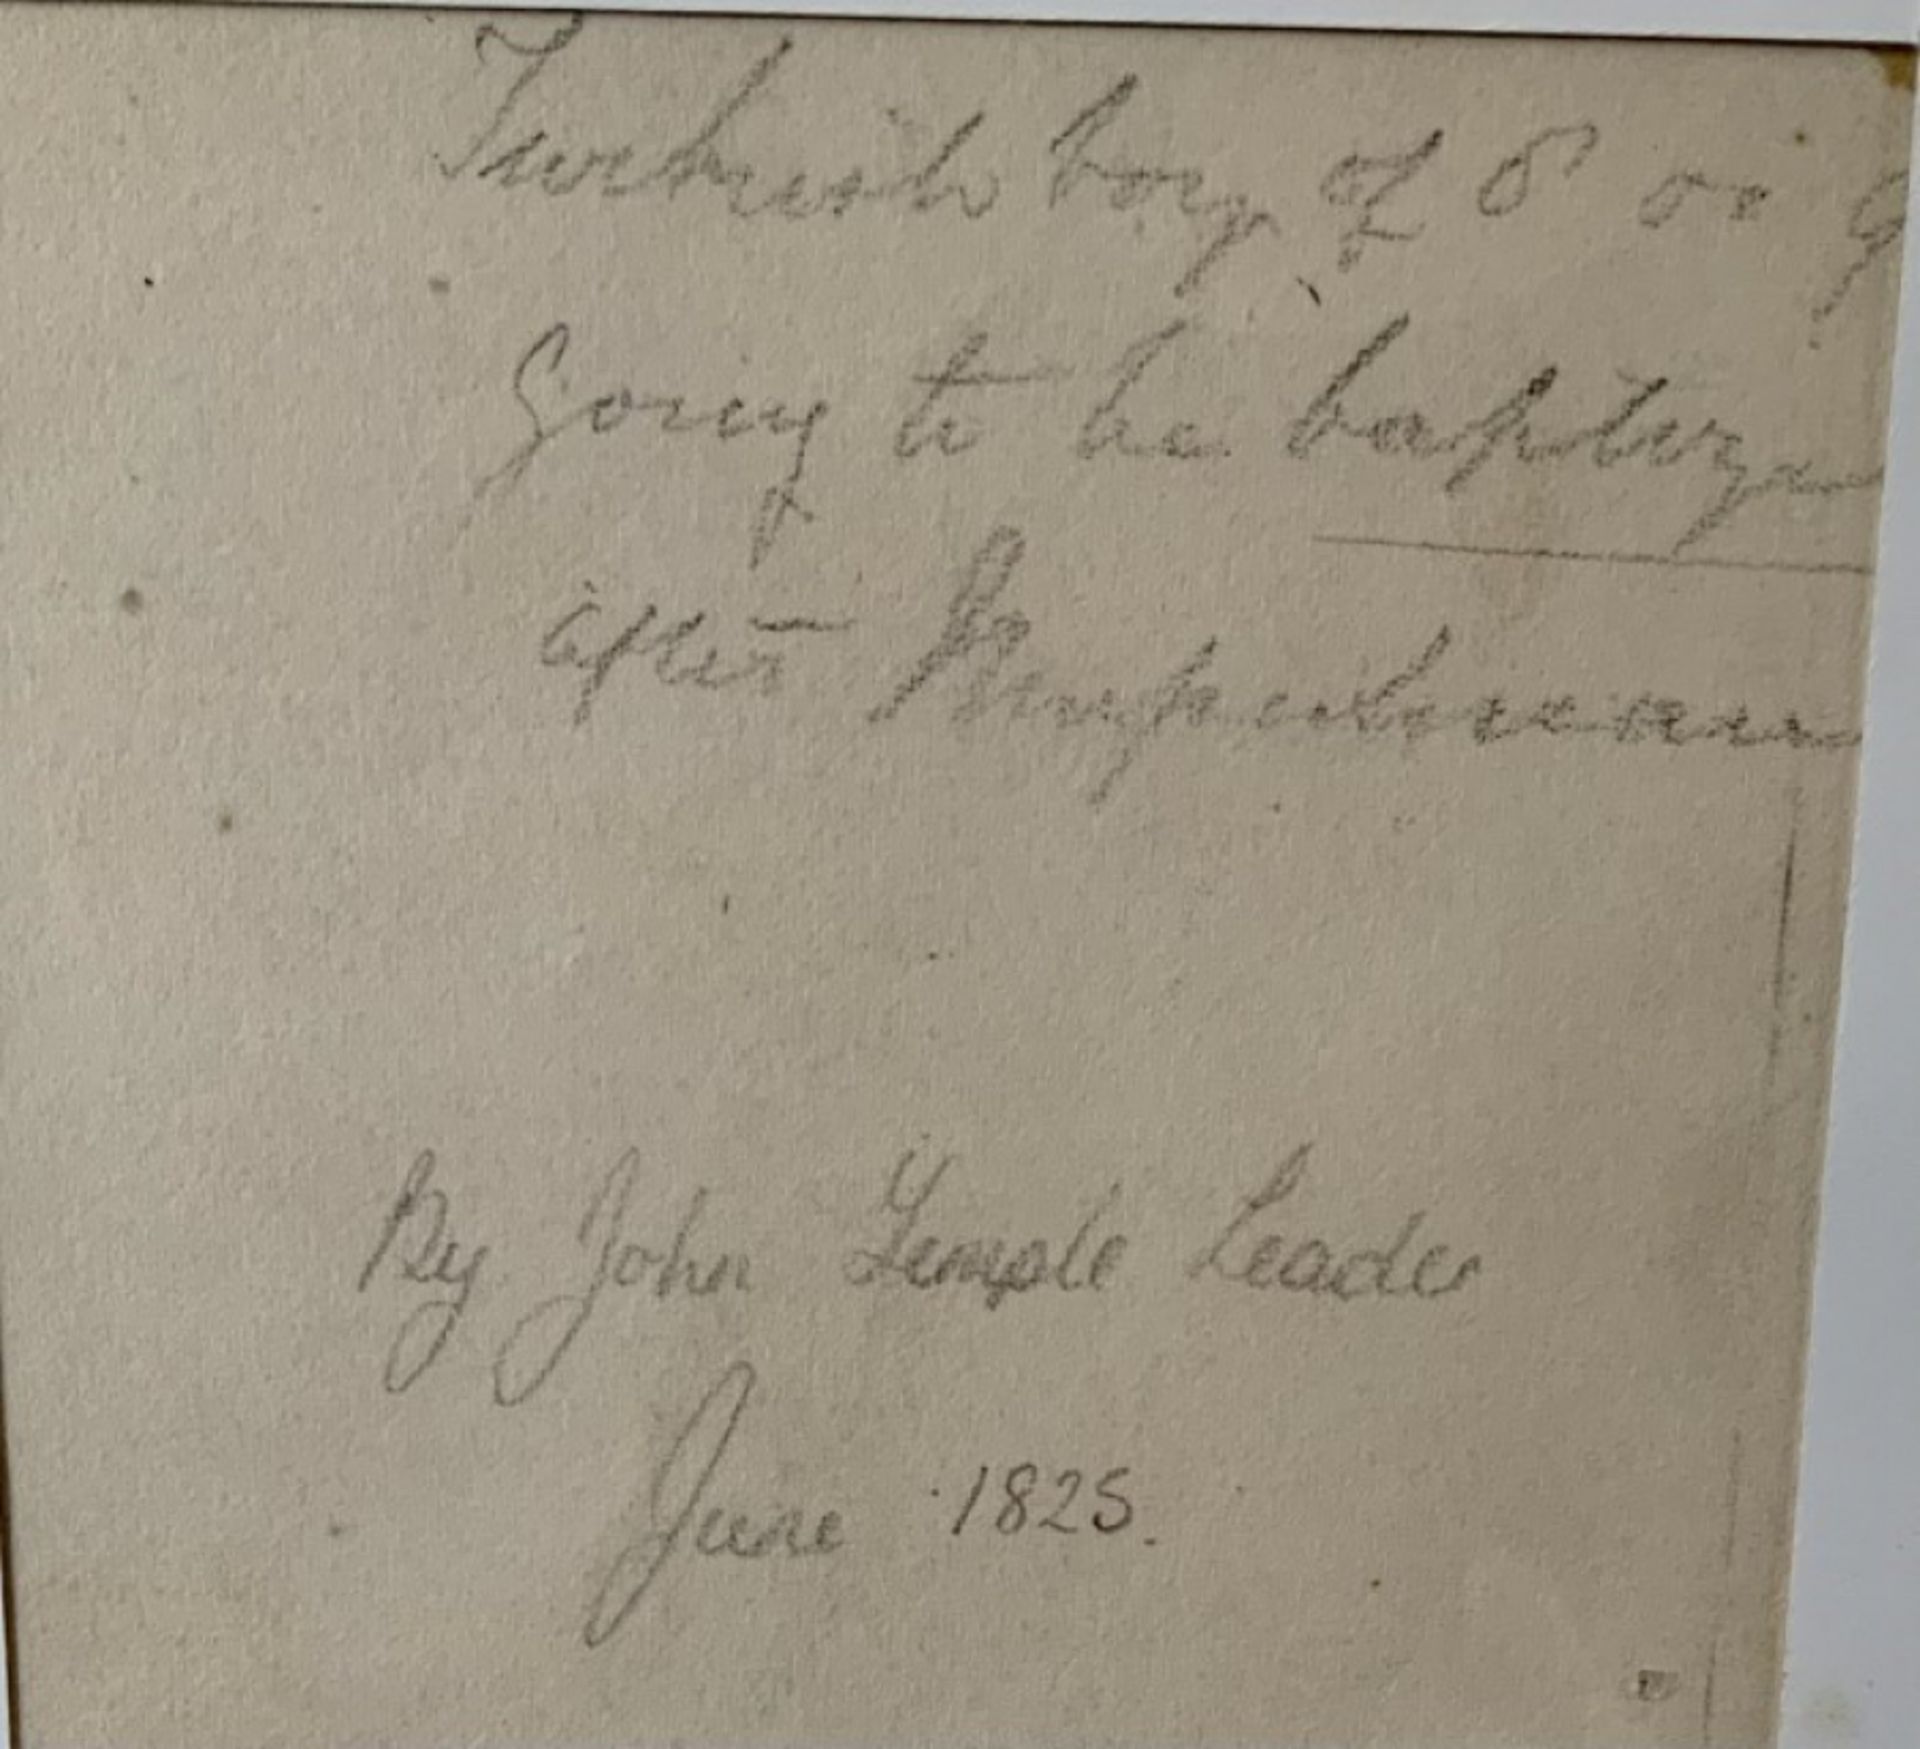 Turkish boy of 8 or 9
going to be baptize
after
By John Temple Leader
June 1825.